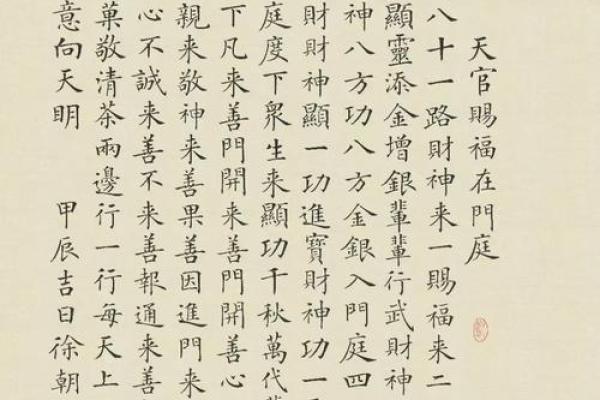 天官賜福在門庭
八十一路財神来一賜福来二
顯靈添金增銀輩輩行武財神
神八方功八方金銀入門庭四
財財神顯一功進寶財神功一
庭度下衆生来顯功千秋萬代
下凡来善門開来善門開善心
親来敬神来善果善因進門来
心不誠来善不来善報通来善
菓敬清茶兩邊行一行每天上
意向天明 甲辰吉日徐朝